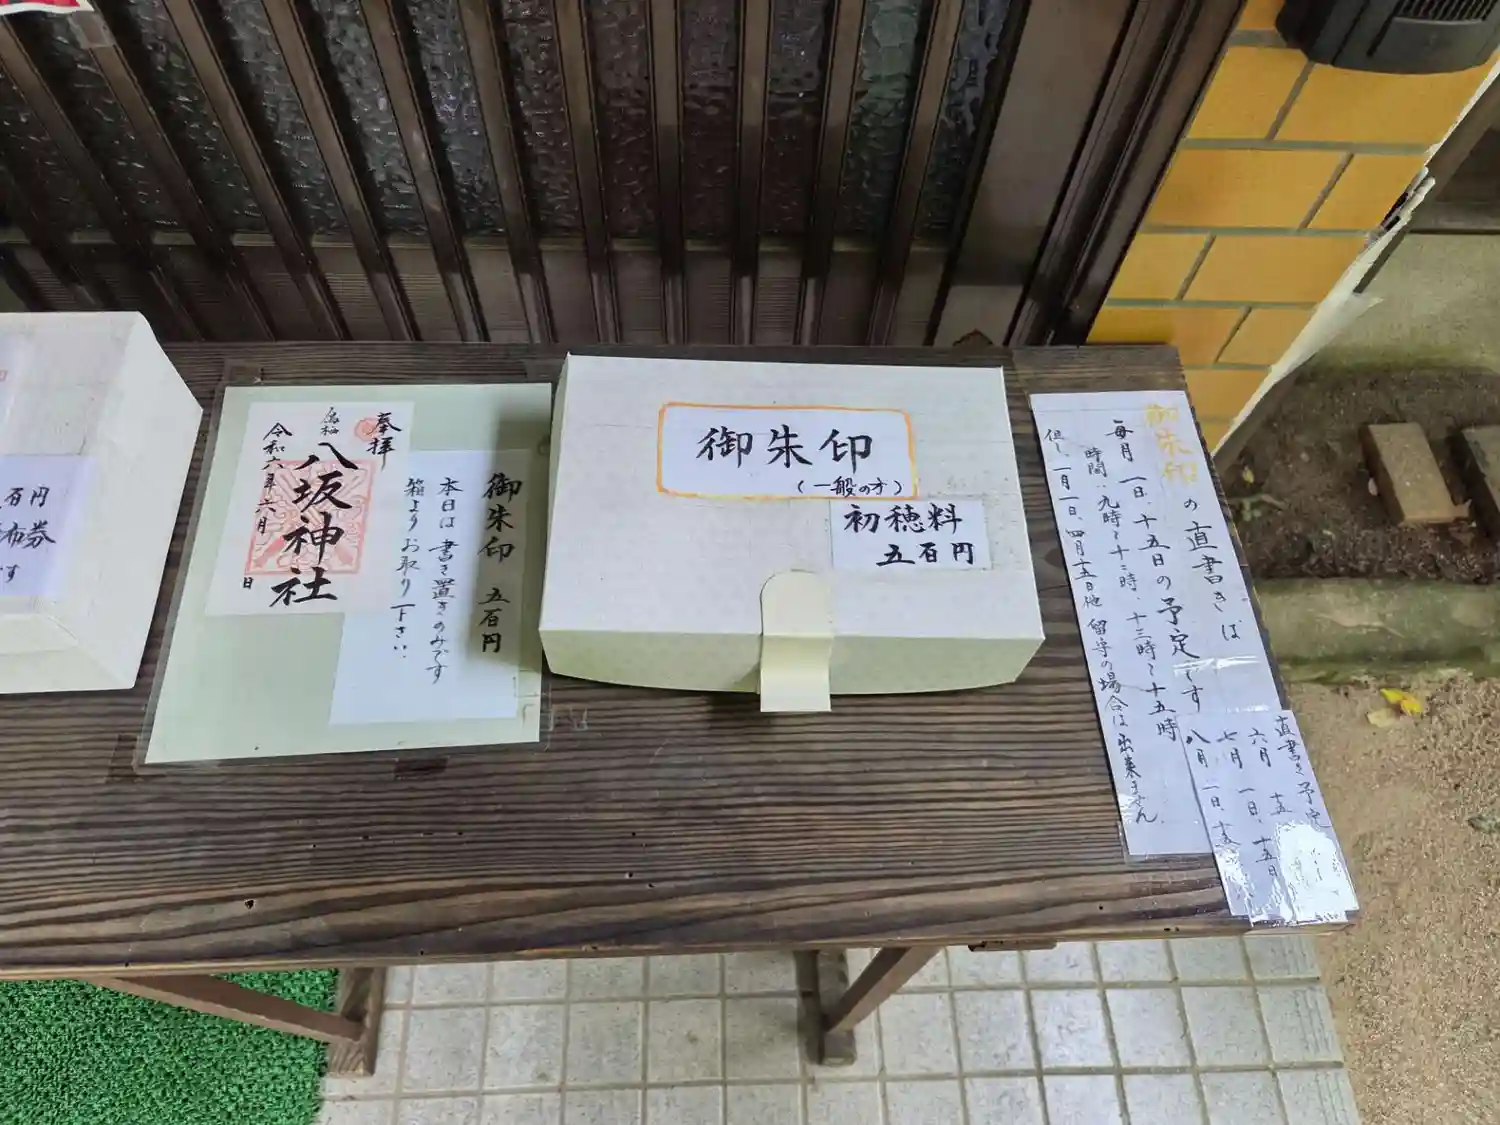 百円
布券
す
奉拝
鳥栖
八坂神社
令和六年六月
日
御朱印 五百円
本日は書き置きのみです
箱よりお取り下さい。
御朱印
(一般の方)
初穂料
五百円
御朱印の直書きは
毎月一日、十五日の予定です
時間:九時~十二時、十三時~十五時
但し、一月一日、四月十五日他留守の場合は出来ません。
直書き予定
六月 十五
七月 一日、十五日
八月 一日、十五